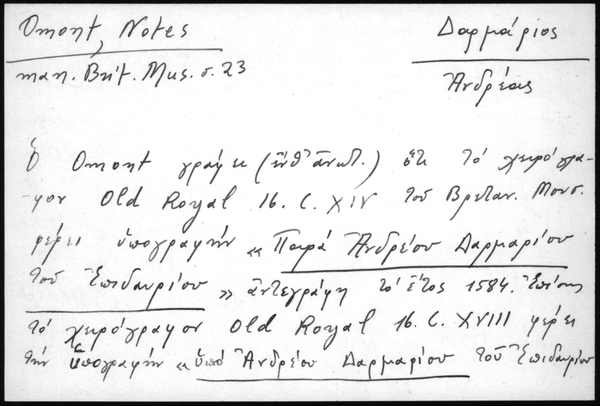 Omont, Notes
Δαρμάριος
man. Brit. Mus. σ. 23
Ἀνδρέας
Ὁ Omont γράφει (ἔνθ' ἀνωτ.) ὅτι τό χειρόγρα-
-φον Old Royal 16. C. XIV τοῦ Βρεταν. Μουσ.
φέρει ὑπογραφήν « Παρά Ἀνδρέου Δαρμαρίου
τοῦ Ἐπιδαυρίου » ἀντεγράφη τό ἔτος 1584. Ἐπίσης
τό χειρόγραφον Old Royal 16. C. XVIII φέρει
τήν ὑπογραφήν « ὑπό Ἀνδρέου Δαρμαρίου τοῦ Ἐπιδαυρίου